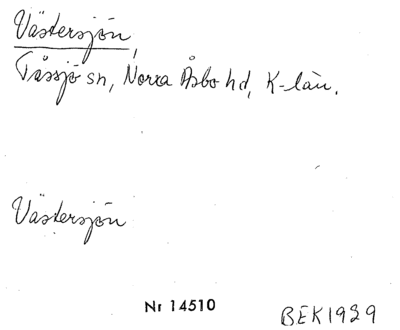 Västersjön,
Tåssjö sn, Norra Åsbo hd, K-län.
Västersjön
Nr 14510
BEK1929